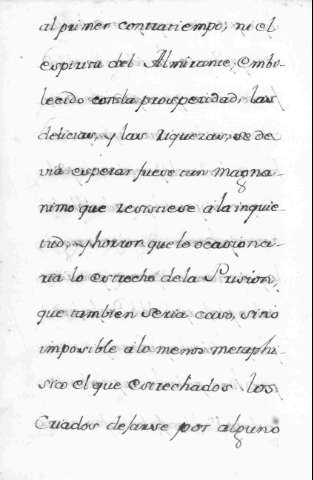 al primer contratiempo; ni el
espiritu del Almirante, embe-
lecido con la prosperidad, las
delicias, y las riquezas, se de
via esperar fuese tan magna-
nimo que resistiese a la inquie-
tud, y horror que le ocasiona-
ria lo estrecho de la Prision,
que tambien seria caso, sino
imposible a lo menos metaphi-
sico el que estrechados los
Criados dejarse por alguno